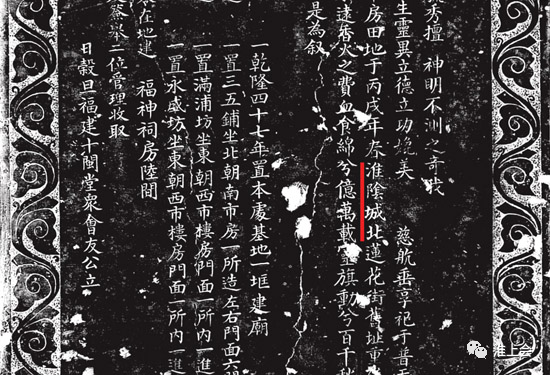 秀擅 神明不測之奇哉
生靈異立德立功媲美 慈航垂享祀于普
房田地于丙戌年春淮陰城北蓮花街舊址重
逮香火之費血食綿兮億萬載 旗動兮百千秋
是為叙
一乾隆四十七年置本處基地一 建廟
一置三五鋪坐北朝南市房一所造左右門面六
一置滿浦坊坐東朝西市樓房門面一所內一進
一置永盛坊坐東朝西市樓房門面一所內一進
在地建 福神祠房陸間
舉二位管理收取
日穀旦福建十閩堂眾會友公立